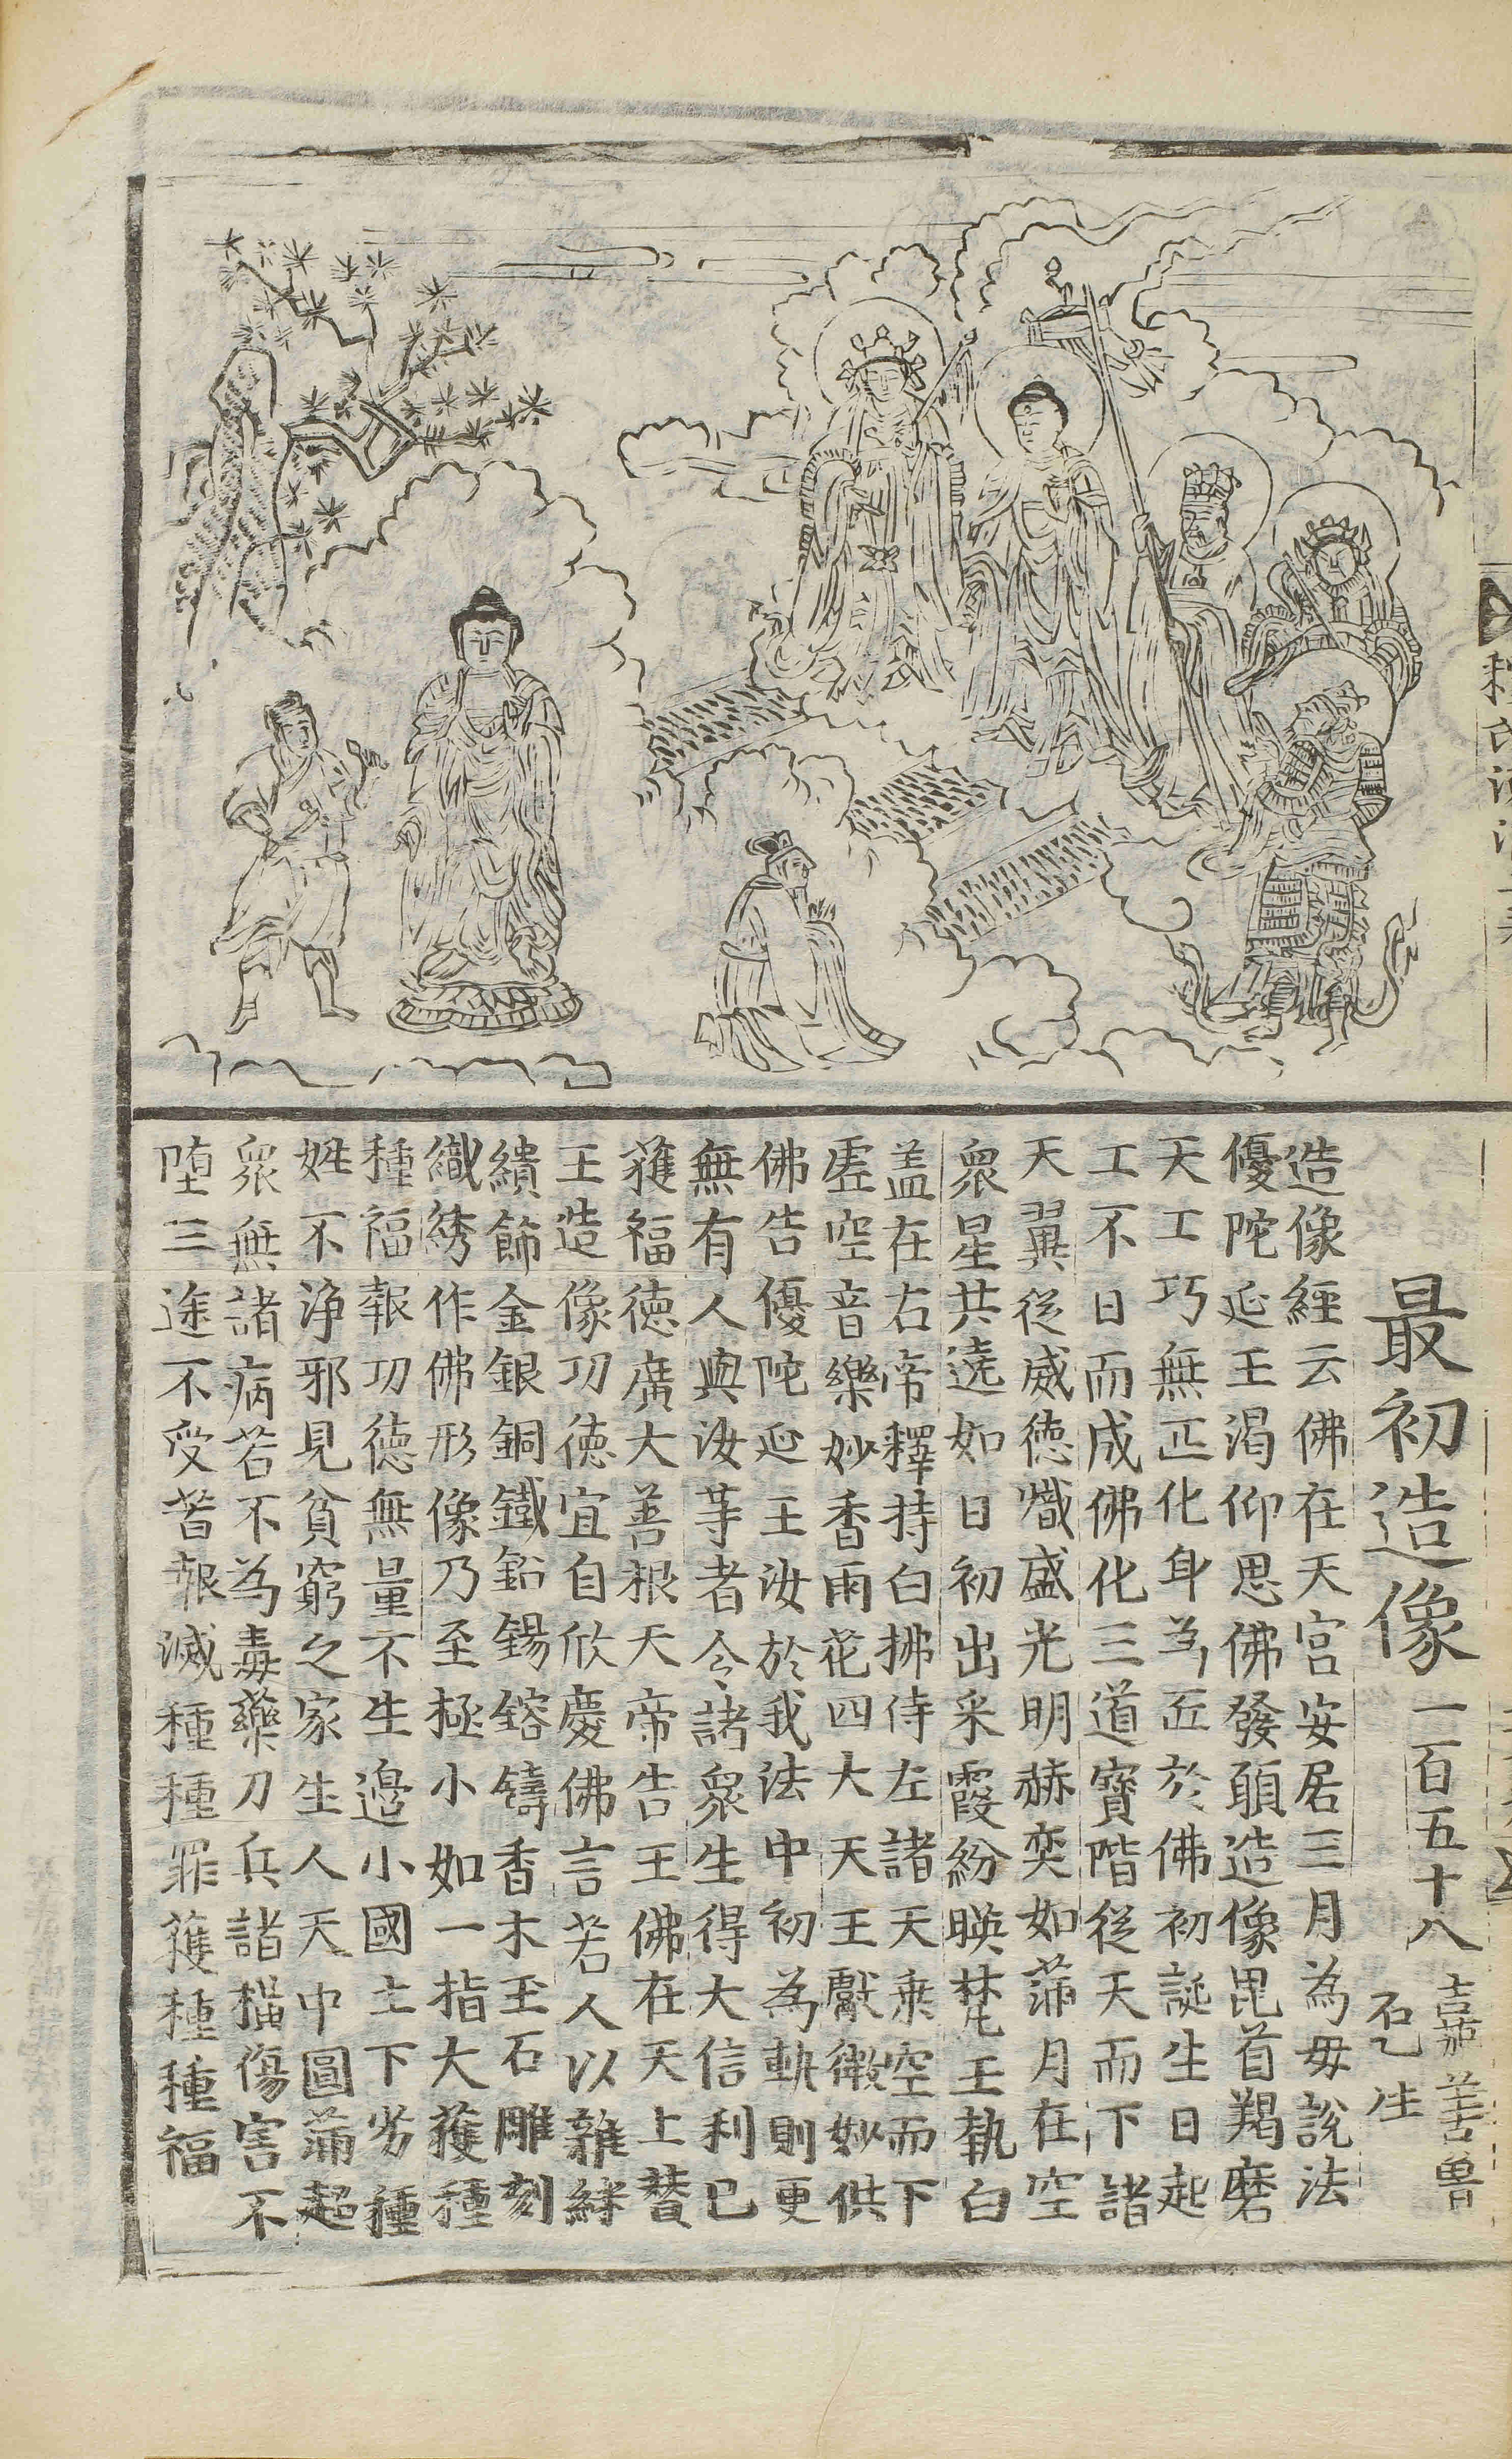 最初造像 一百五十八
嘉善魯
造像經云佛在天宮安居三月為母說法
優陀延王渴仰思佛發願造像毘首羯磨
天工巧無匹化身為匠於佛初誕生日起
工不日而成佛化三道寶階從天而下諸
天翼從威德熾盛光明赫奕如滿月在空
眾星共遶如日初出采霞紛暎梵王執白
盖在右帝釋持白拂侍左諸天乘空而下
虛空音樂妙香雨花四大天王獻微妙供
佛告優陀延王汝於我法中初為軌則更
無有人與汝等者今諸眾生得大信利已
獲福德廣大善根天帝告王佛在天上讚
王造像功德宜自欣慶佛言若人以雜綵
繢飾金銀銅鐵鉛錫鎔鑄香木玉石雕刻
織綉作佛形像乃至極小如一指大獲種
種福報功德無量不生邊小國土下劣種
姓不淨邪見貧窮之家生人天中圓滿超
眾無諸病若不為毒藥刀兵諸橫傷害不
墮三途不受苦報滅種種罪獲種種福